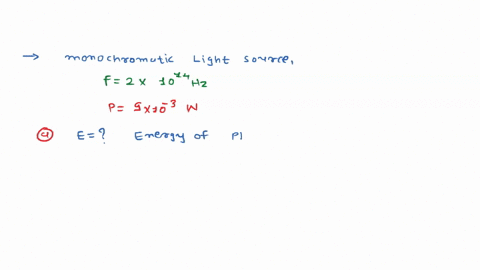 → monochromatic Light source,
f = 2 × 10¹⁴ Hz
P = 5×10⁻³ W
(a) E = ? Energy of Pl